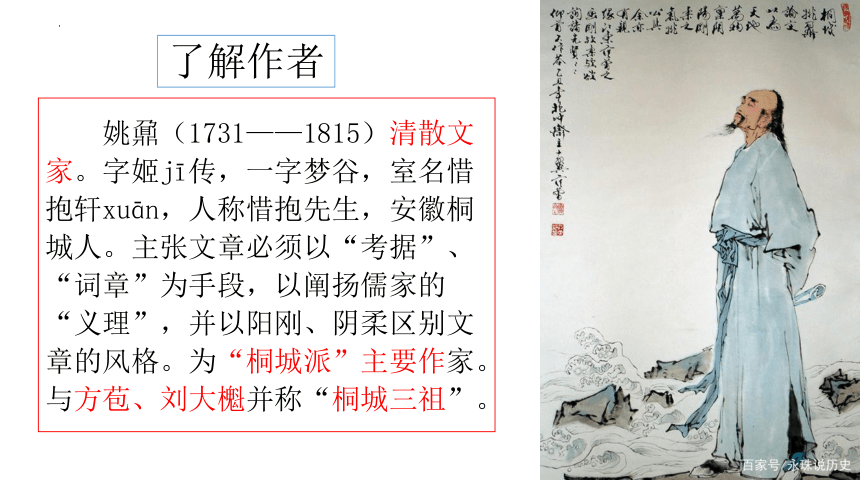 了解作者
姚鼐（1731——1815）清散文
家。字姬jī传，一字梦谷，室名惜
抱轩xuān，人称惜抱先生，安徽桐
城人。主张文章必须以“考据”、
“词章”为手段，以阐扬儒家的
“义理”，并以阳刚、阴柔区别文
章的风格。为“桐城派”主要作家。
与方苞、刘大櫆并称“桐城三祖”。
桐城
姚鼐
论文
以为
天地
万物
禀阴
阳刚
柔之
百家号/永珠说历史